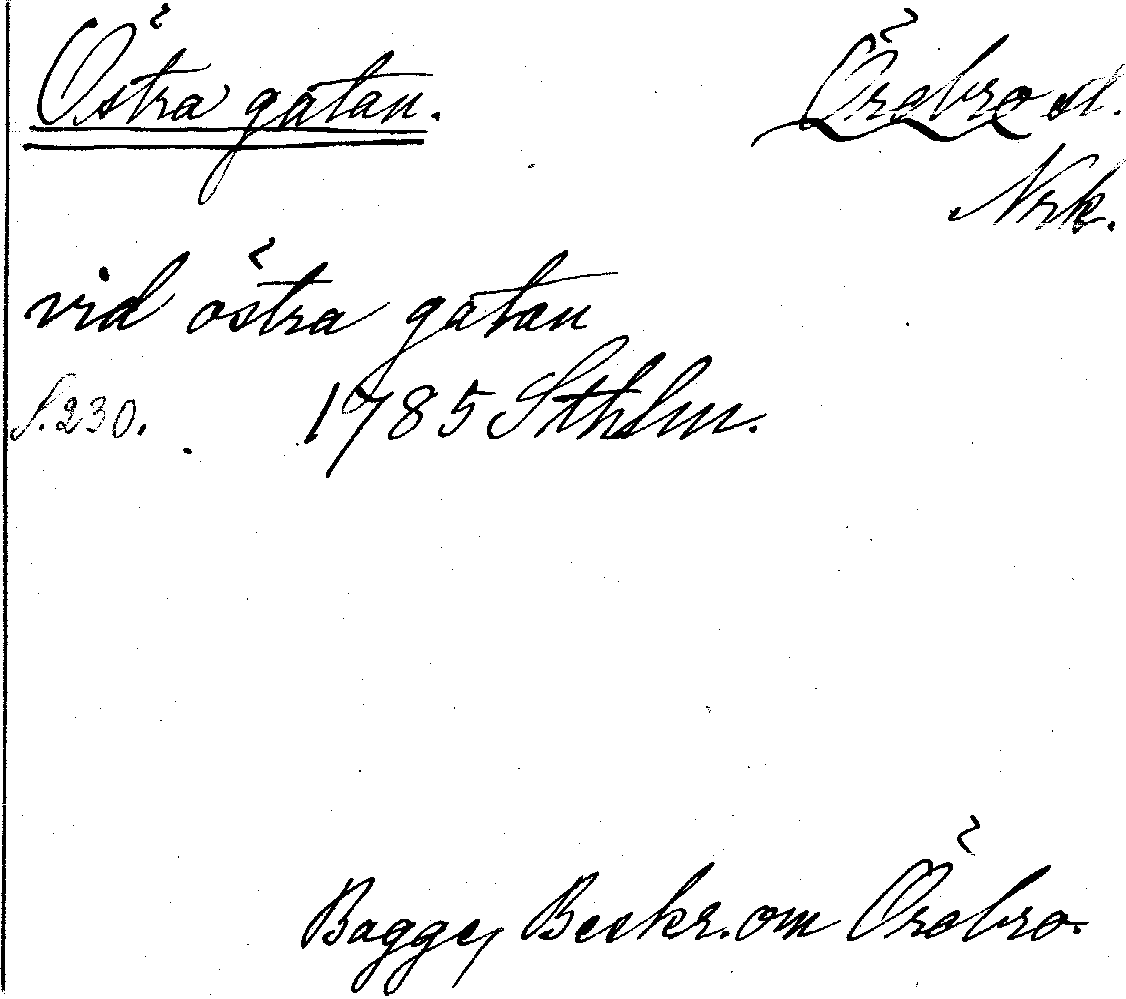 Östra gatan. Örebro st.
Nrk.
vid östra gatan
S. 230. 1785 Sthlm.
Bagge, Beskr. om Örebro.